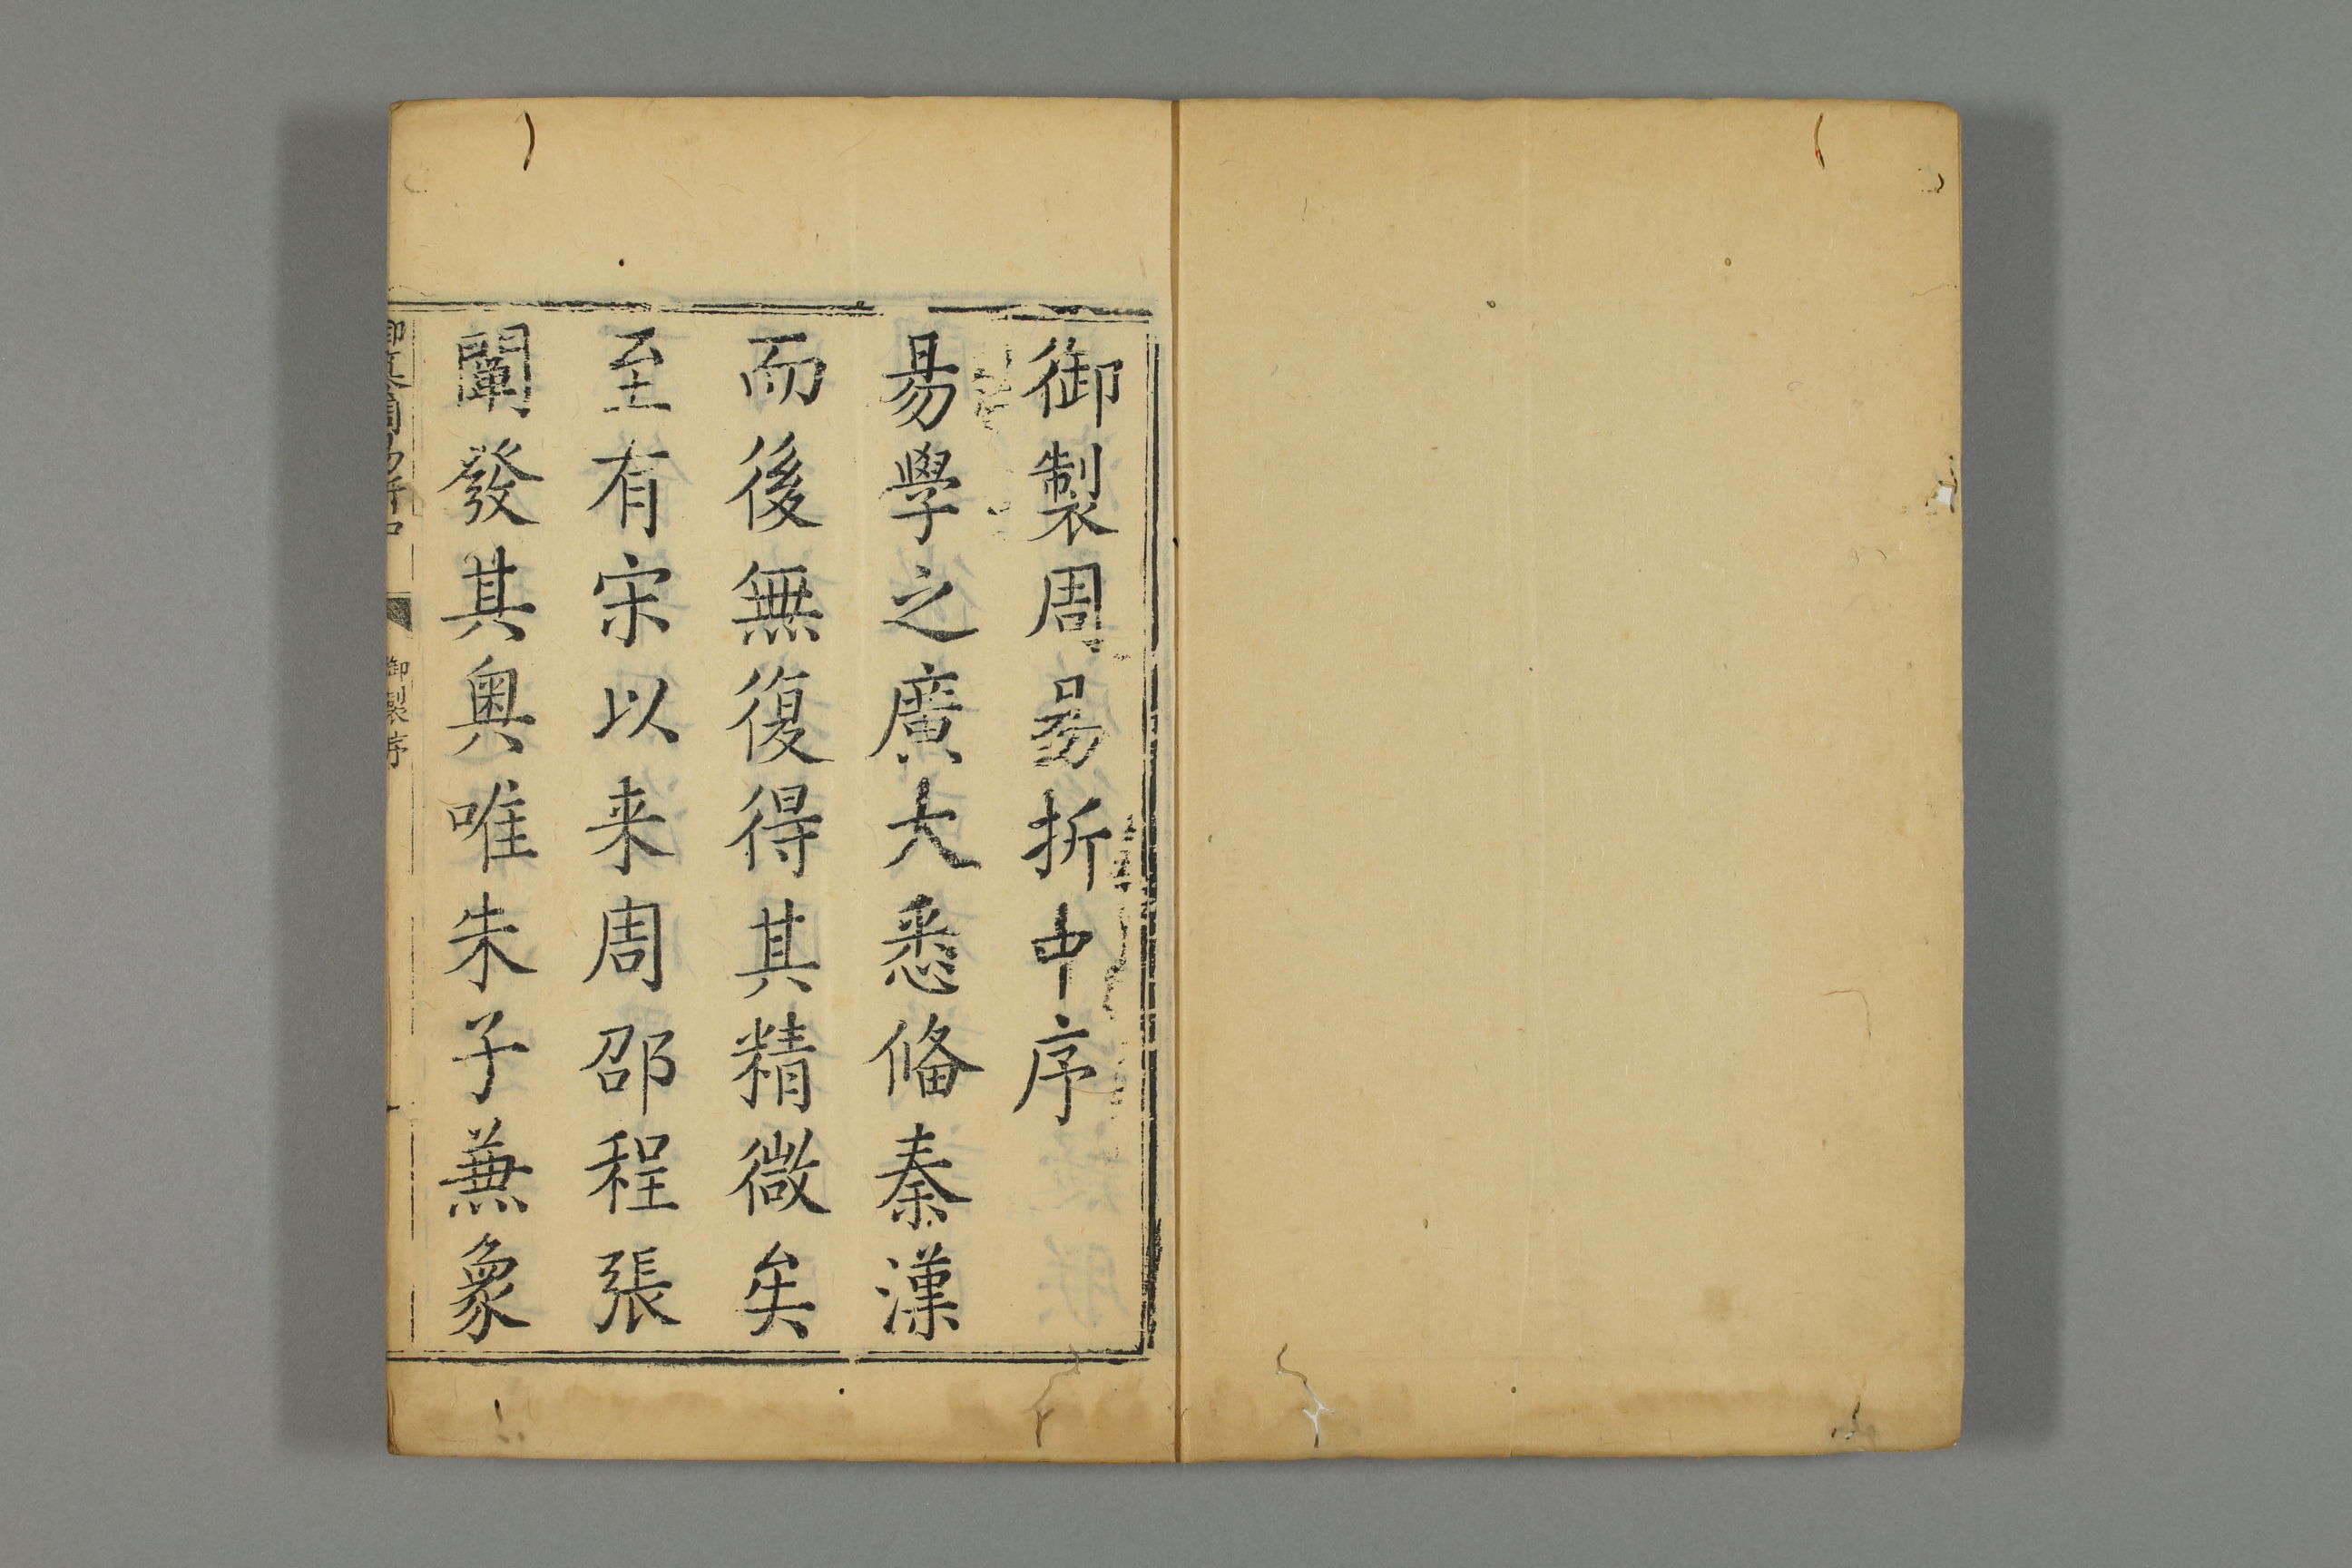 御製周易折中序
易學之廣大悉備秦漢
而後無復得其精微矣
至有宋以来周邵程張
闡發其奥唯朱子兼象
御製序